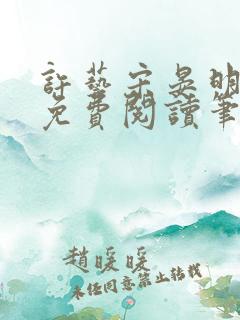 許藝宗晏明
免費閱讀筆
趙暖暖
未經同意禁止轉載